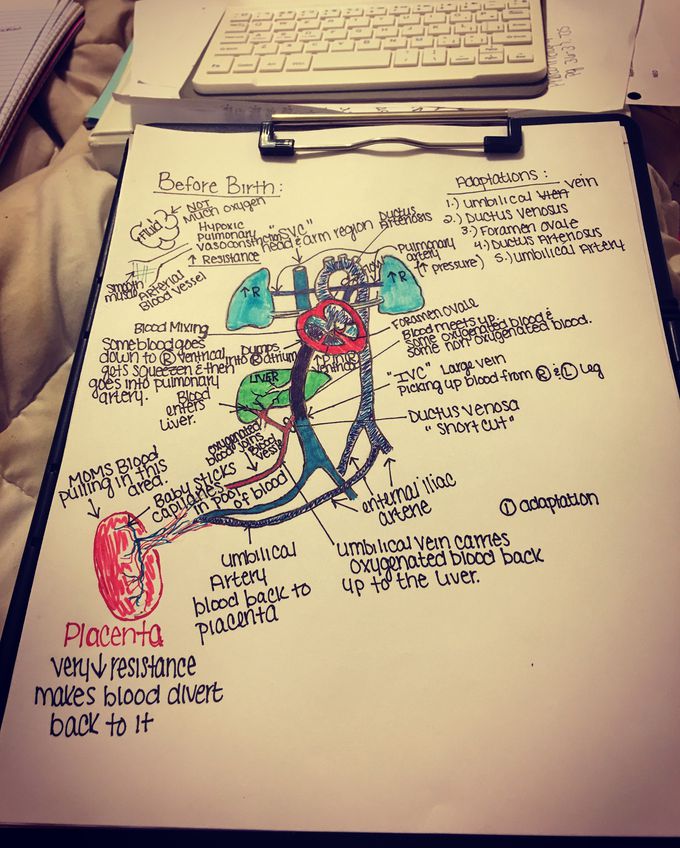 Before Birth:
NOT
Much oxygen
Fluid
Hypoxic
Pulmonary
vasoconstriction
↑ Resistance
Smooth
muscle
Arterial
Blood vessel
"SVC"
head & arm region
Ductus
Arteriosis
Pulmonary
artery
(↑ Pressure)
Adaptations:
1.) umbilical vein
2.) Ductus Venosus
3.) Foramen ovale
4.) Ductus Artenosus
5.) umbilical Artery
↑R
↑R
Blood Mixing
Some blood goes
down to R ventrical
gets squeezen & then
goes into pulmonary
artery.
Dumps
into R atrium
Foramen Ovale
Blood meets up.
Some oxygenated blood &
some non oxygenated blood.
"IVC" Large vein
Picking up blood from R & L leg
LIVER
Blood
enters
Liver.
Ductus Venosa
"Short cut"
oxygenated
blood joins
Blood
MOMS Blood
pulling in this
area.
Baby sticks
capilaries
in pool
of blood
enternal iliac
arterie
① adaptation
umbilical
Artery
blood back to
placenta
umbilical vein carries
oxygenated blood back
up to the liver.
Placenta
very ↓ resistance
makes blood divert
back to it